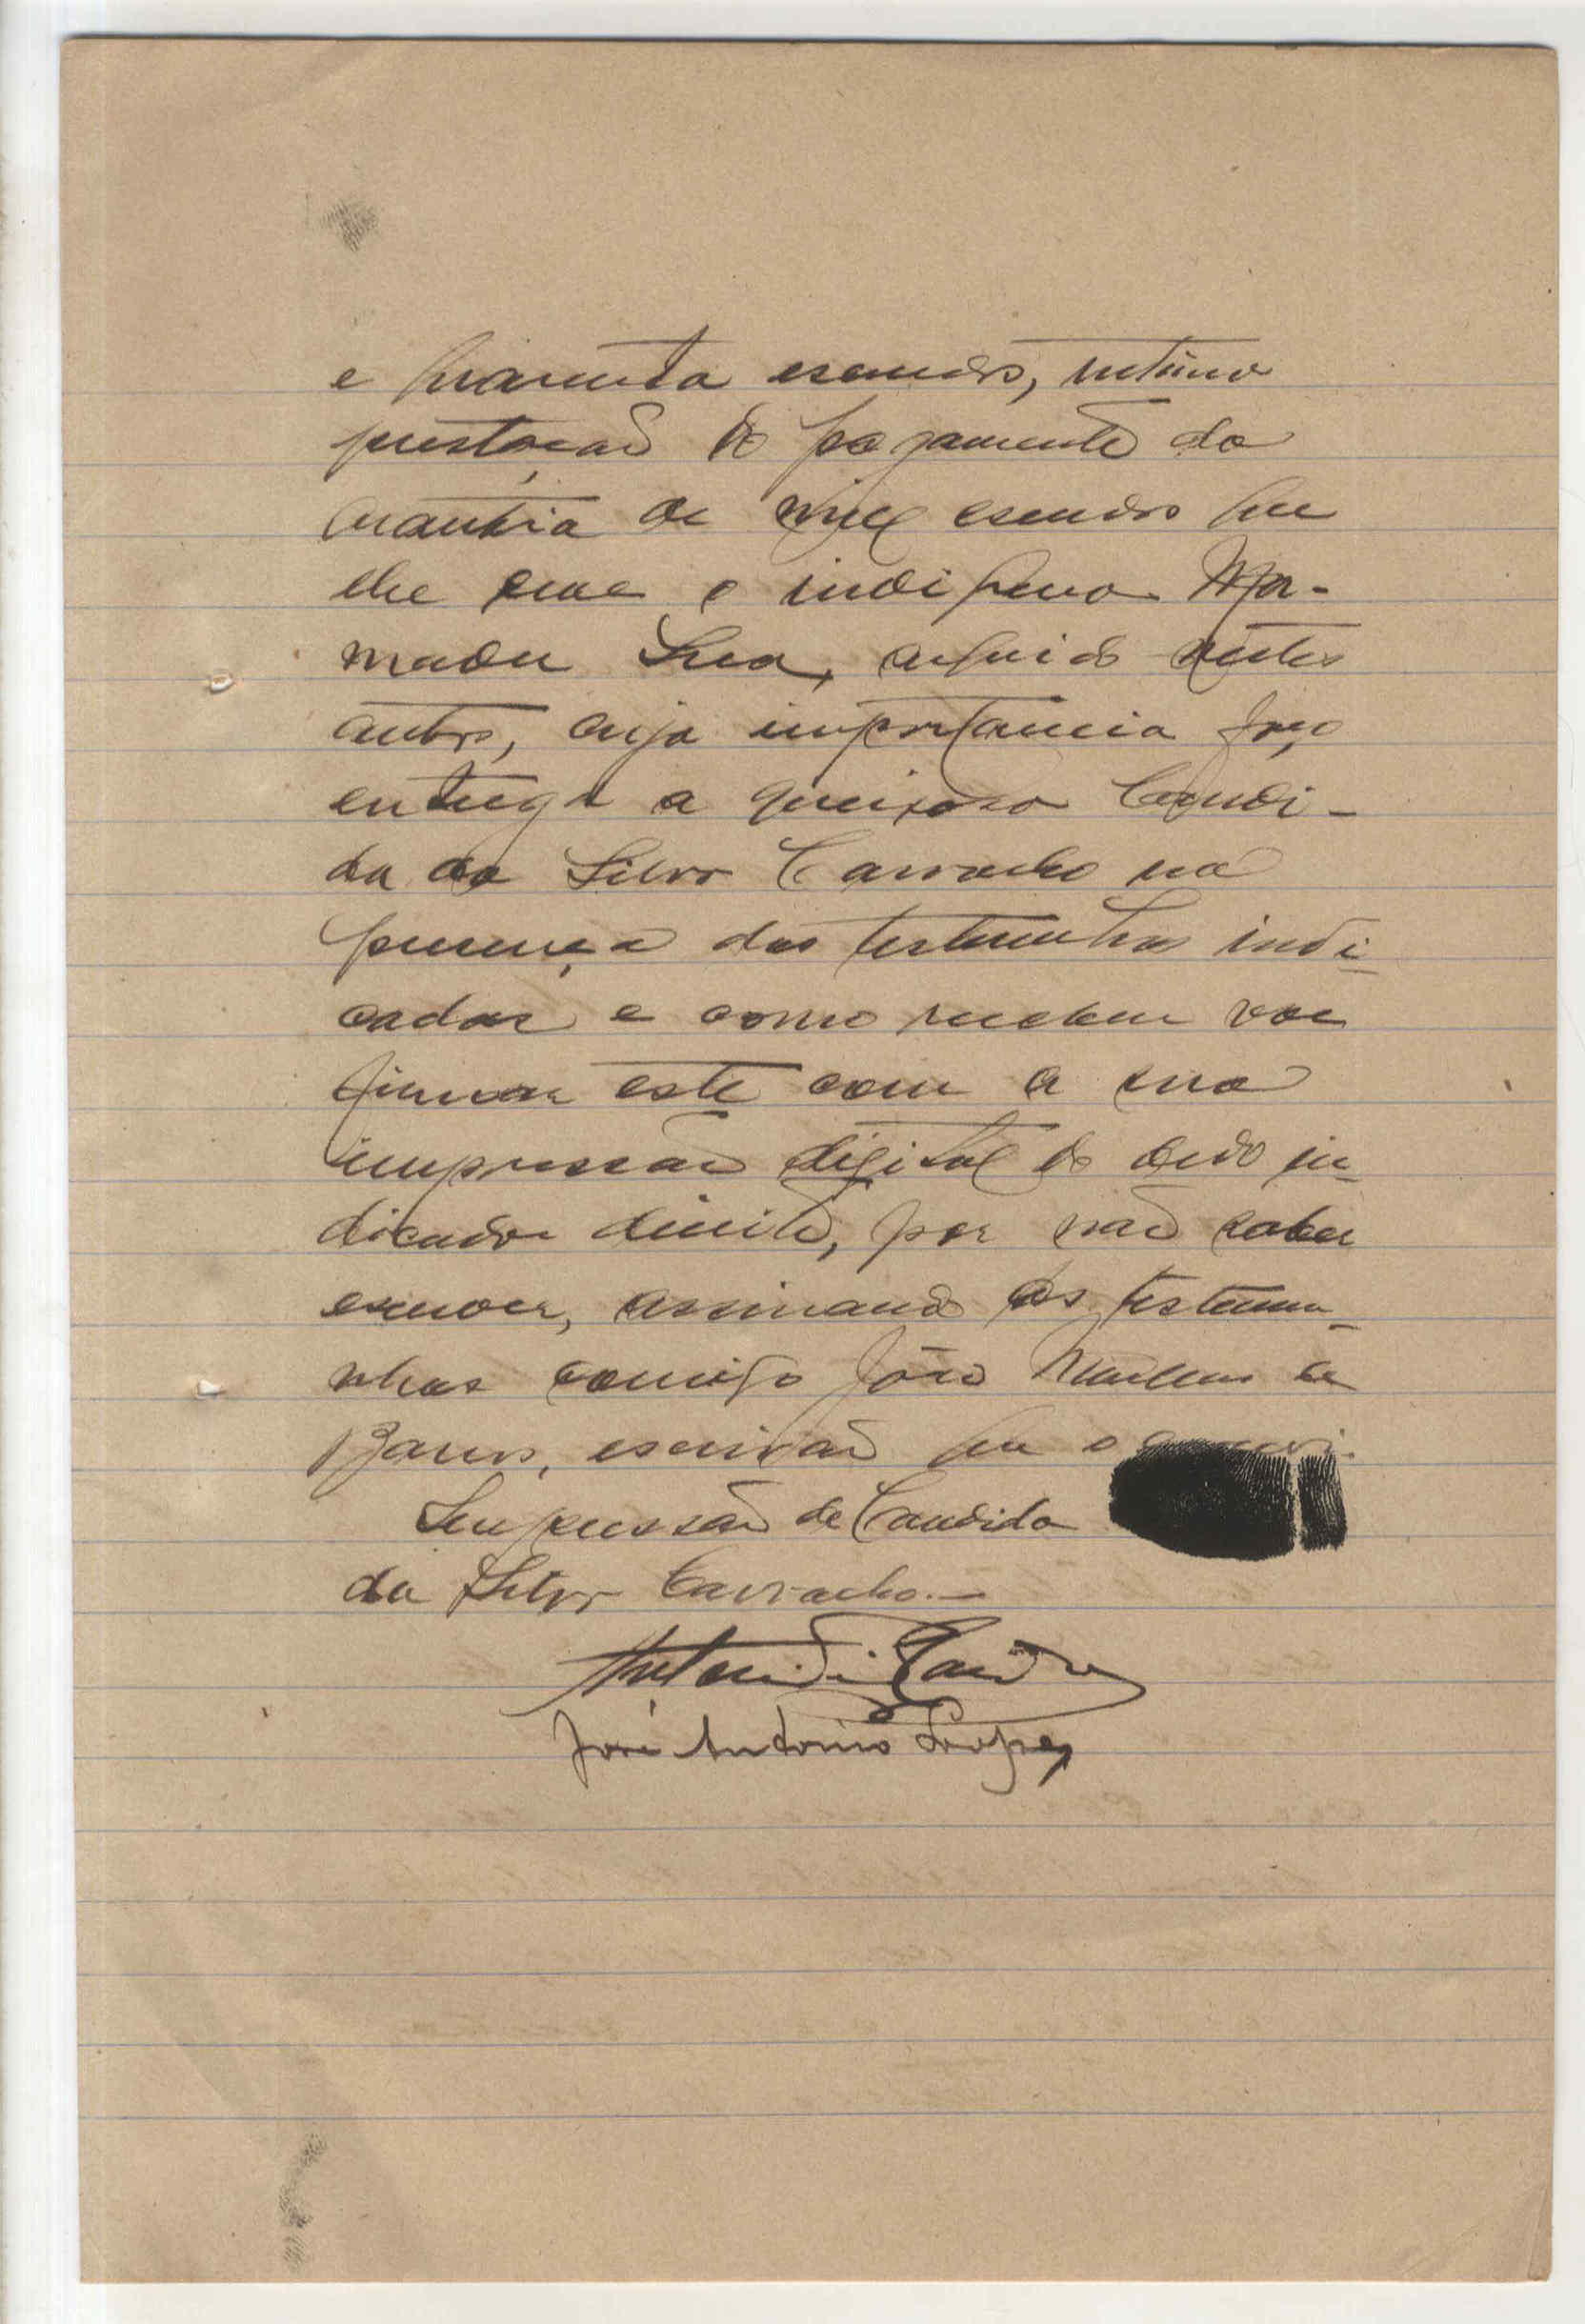 e quarenta escudos, setima
prestação do pagamento da
quantia de mil escudos que
lhe deve o indigena Ma-
madu Seca, arguido nestes
autos, cuja importancia faço
entrega a queixosa Candi-
da da Silva Carvalho na
presença das testemunhas indi-
cadas e como recebeu vae
firmar este com a sua
impressão digital do dedo in-
dicador direito, por não saber
escrever, assinando as testemu-
nhas comigo João de
Barros, escrivão que o escrevi.
Impressão de Candida
da Silva Carvalho.—
José Antonio Lopes